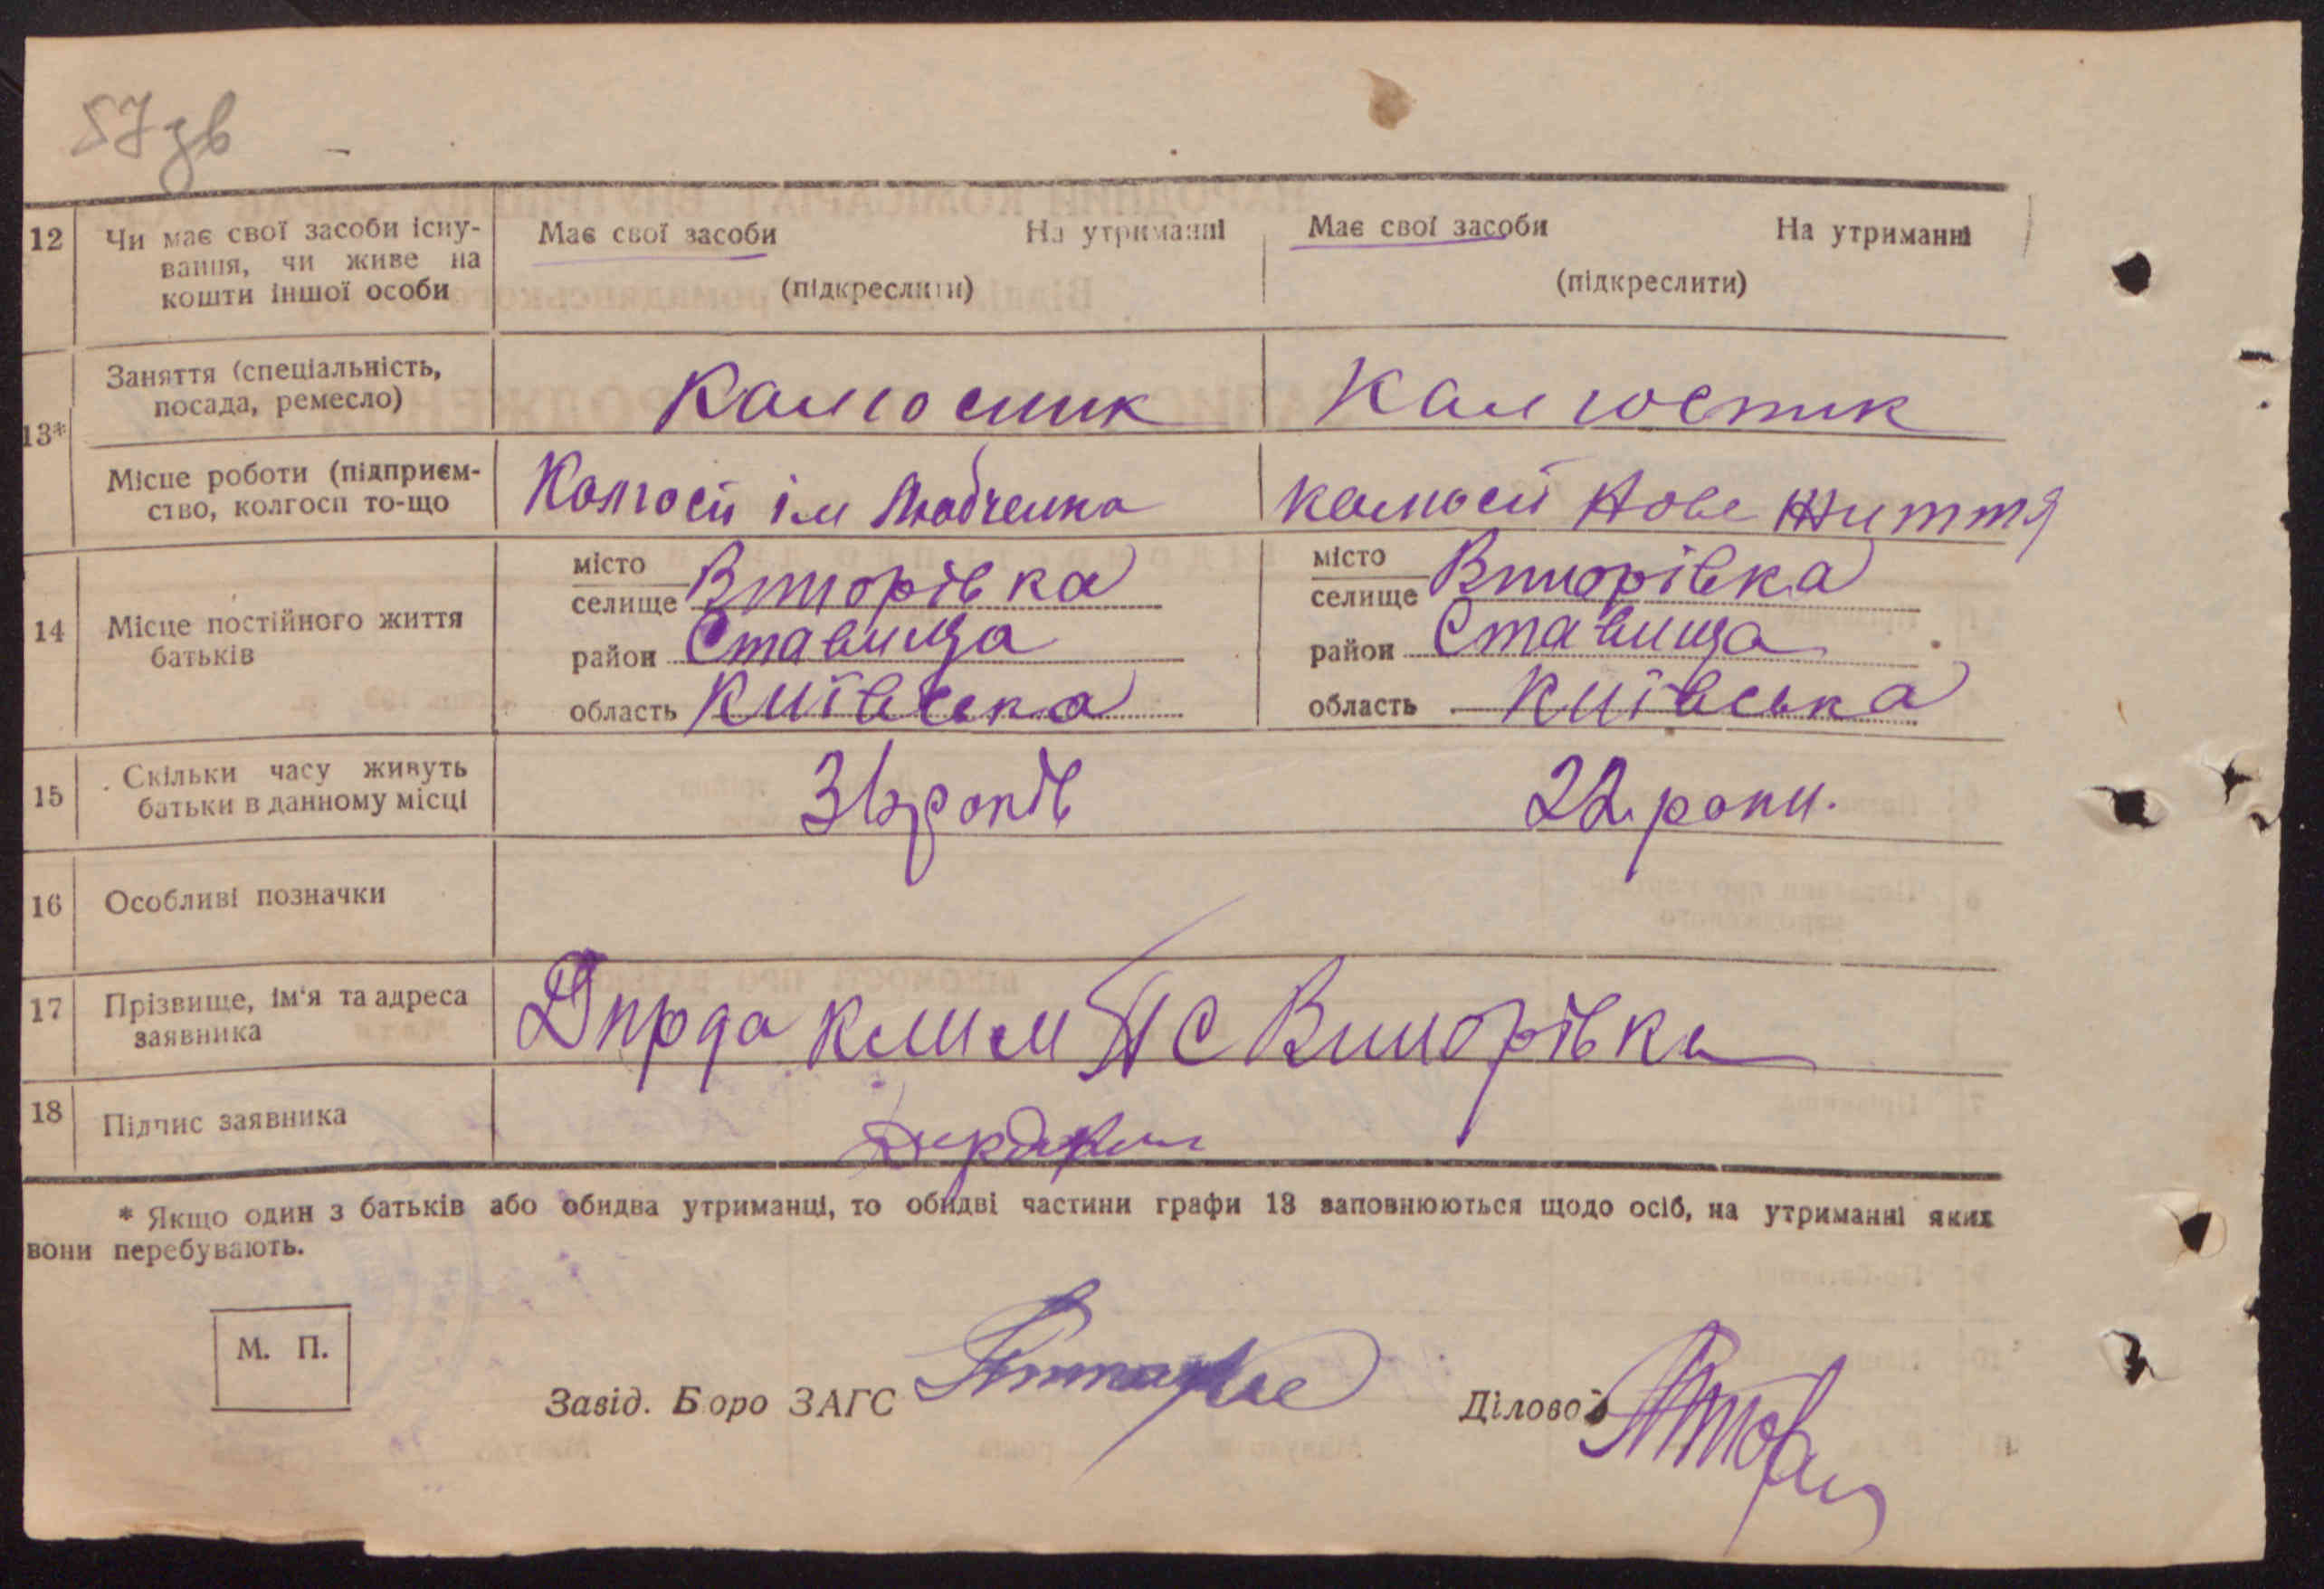 57зв
12 Чи має свої засоби існу-
вання, чи живе на
кошти іншої особи
Має свої засоби На утриманні
(підкреслити)
Має свої засоби На утриманні
(підкреслити)
13* Заняття (спеціальність,
посада, ремесло)
Калгоспик
Калгоспик
Місце роботи (підприєм-
ство, колгосп то-що
Колгосп ім Любченка
калгосп Нове Життя
14 Місце постійного життя
батьків
місто
селище Винорівка
район Ставища
область Київська
місто
селище Винорівка
район Ставища
область Київська
15 Скільки часу живуть
батьки в данному місці
31 років
22 роки.
16 Особливі позначки
17 Прізвище, ім'я та адреса
заявника
Клим С Винорівка
18 Підпис заявника
* Якщо один з батьків або обидва утриманці, то обидві частини графи 13 заповнюються щодо осіб, на утриманні яких
вони перебувають.
М. П.
Завід. Бюро ЗАГС
Діловод